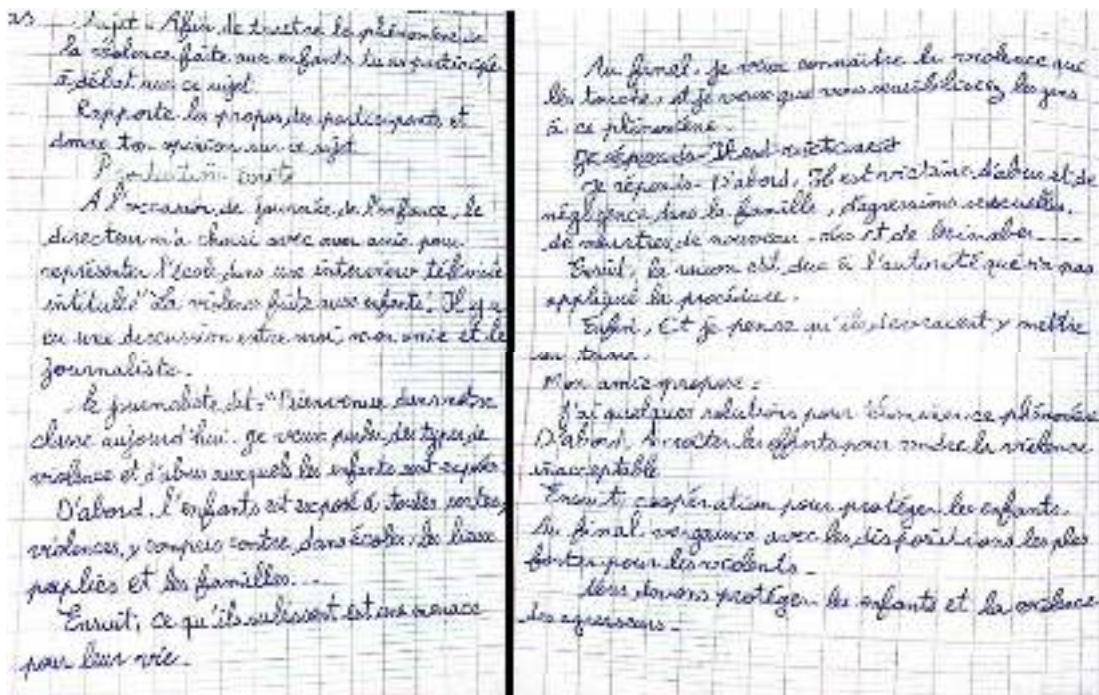 Sujet : Afin de traiter le phénomène de
la violence faite aux enfants tu as participé
à débat sur ce sujet.
Rapporte les propos des participants et
donne ton opinion sur ce sujet
Production écrite
A l'occasion de journée de l'enfance, le
directeur m'a choisi avec mon amie pour
représenter l'école dans une interview télévisée
intitulé "La violence faite aux enfants". Il y a
eu une discussion entre moi, mon amie et le
journaliste.
Le journaliste dit : "Bienvenue dans notre
classe aujourd'hui. Je veux parler des types de
violence et d'abus auxquels les enfants sont exposés
D'abord, l'enfants est exposé à toutes sortes
violences, y compris contre, dans école, les lieux
poplics et les familles...
Ensuit, ce qu'ils subissent est une menace
pour leur vie.
Au final, je veux connaître la violence qui
les touche, et je veux que vous sensibilisez les gens
à ce phénomène.
Je réponds Il est
Je réponds - D'abord, Il est victime d'abus et de
négligence dans la famille, d'agressions sexuelles,
de meurtres de nouveau-nés et de
Ensuit, la raison est due à l'autorité que n'a pas
appliqué la procédure.
Enfin, Et je pense qu'ils devraient y mettre
un terme.
Mon amie propose :
J'ai quelques solutions pour ce phénomène
D'abord, les pour rendre la violence
inacceptable
Ensuit, coopération pour protéger les enfants.
Au final, avec les dispositions les plus
fortes pour les violents.
devons protéger les enfants et la violence
des agresseurs.